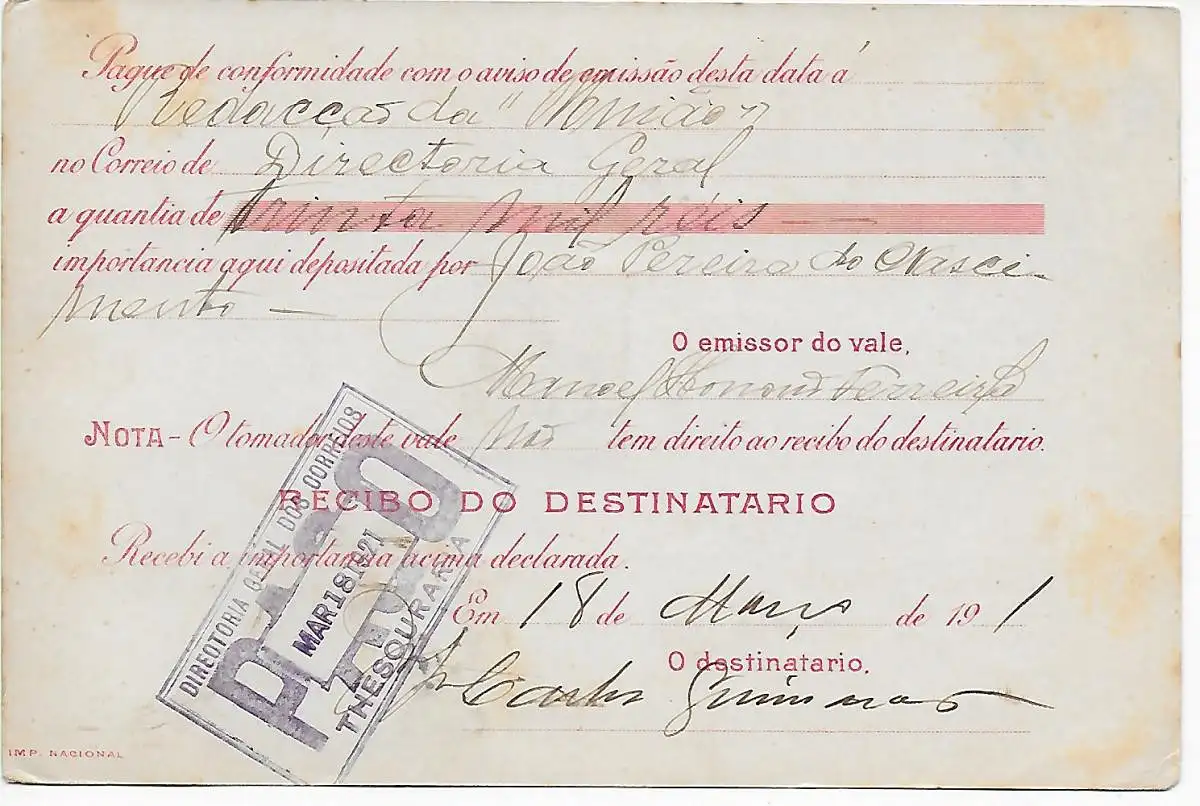 Pague de conformidade com o aviso de emissão desta data á
Redacção da "União"
no Correio de Directoria Geral
a quantia de trinta mil réis —
importancia aqui depositada por João Pereira do Nasci-
mento —
O emissor do vale,
Manoel Ferreira
NOTA - O tomador deste vale não tem direito ao recibo do destinatario.
RECIBO DO DESTINATARIO
Recebi a importancia acima declarada.
Em 18 de Março de 191
O destinatario,
DIRECTORIA GERAL DOS CORREIOS
PAGO
MAR 18 1921
THESOURARIA
IMP. NACIONAL